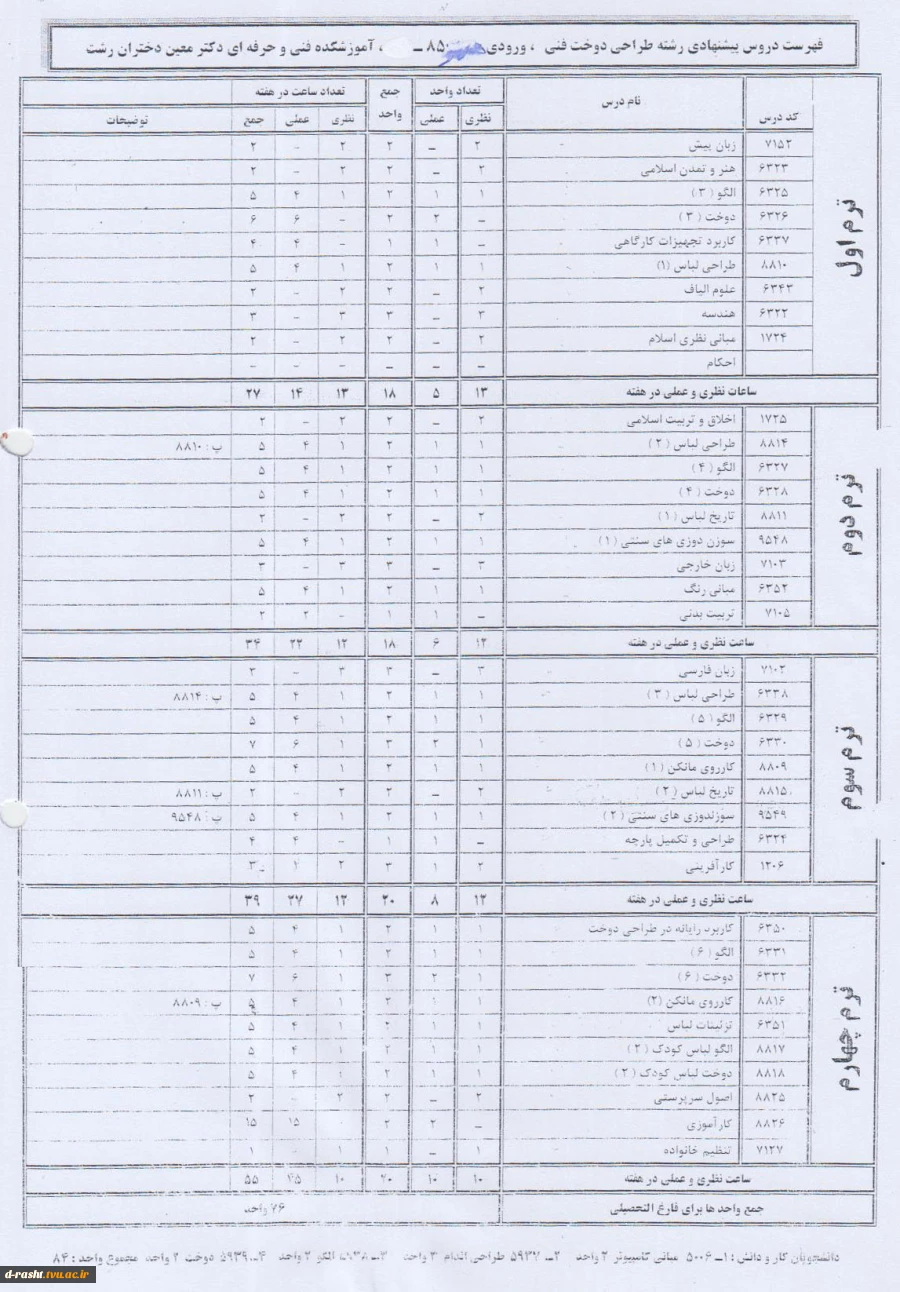 فهرست دروس پیشنهادی رشته طراحی دوخت فنی ، ورودی ۸۵۰ ــ ، آموزشکده فنی و حرفه ای دکتر معین دختران رشت
کد درس نام درس تعداد واحد جمع واحد تعداد ساعت در هفته
نظری عملی نظری عملی جمع توضیحات
ترم اول
۷۱۵۲ زبان پیش ۲ ــ ۲ ۲ - ۲
۶۳۲۳ هنر و تمدن اسلامی ۲ ــ ۲ ۲ - ۲
۶۳۲۵ الگو ( ۳ ) ۱ ۱ ۲ ۱ ۴ ۵
۶۳۲۶ دوخت ( ۳ ) ــ ۲ ۲ - ۶ ۶
۶۳۳۷ کاربرد تجهیزات کارگاهی ــ ۱ ۱ - ۴ ۴
۸۸۱۰ طراحی لباس (۱) ۱ ۱ ۲ ۱ ۴ ۵
۶۳۴۳ علوم الیاف ۲ ــ ۲ ۲ - ۲
۶۳۲۲ هندسه ۳ ــ ۳ ۳ - ۳
۱۷۲۴ مبانی نظری اسلام ۲ ــ ۲ ۲ - ۲
احکام ــ ــ ــ ــ ــ ــ
ساعات نظری و عملی در هفته ۱۳ ۵ ۱۸ ۱۳ ۱۴ ۲۷
ترم دوم
۱۷۲۵ اخلاق و تربیت اسلامی ۲ ــ ۲ ۲ - ۲
۸۸۱۴ طراحی لباس ( ۲ ) ۱ ۱ ۲ ۱ ۴ ۵ پ : ۸۸۱۰
۶۳۲۷ الگو ( ۴ ) ۱ ۱ ۲ ۱ ۴ ۵
۶۳۲۸ دوخت ( ۴ ) ۱ ۱ ۲ ۱ ۴ ۵
۸۸۱۱ تاریخ لباس ( ۱ ) ۲ ــ ۲ ۲ - ۲
۹۵۴۸ سوزن دوزی های سنتی ( ۱ ) ۱ ۱ ۲ ۱ ۴ ۵
۷۱۰۳ زبان خارجی ۳ ــ ۳ ۳ - ۳
۶۳۵۲ مبانی رنگ ۱ ۱ ۲ ۱ ۴ ۵
۷۱۰۵ تربیت بدنی ــ ۱ ۱ - ۲ ۲
ساعت نظری و عملی در هفته ۱۲ ۶ ۱۸ ۱۲ ۲۲ ۳۴
ترم سوم
۷۱۰۲ زبان فارسی ۳ ــ ۳ ۳ - ۳
۶۳۳۸ طراحی لباس ( ۳ ) ۱ ۱ ۲ ۱ ۴ ۵ پ : ۸۸۱۴
۶۳۲۹ الگو ( ۵ ) ۱ ۱ ۲ ۱ ۴ ۵
۶۳۳۰ دوخت ( ۵ ) ۱ ۲ ۳ ۱ ۶ ۷
۸۸۰۹ کارروی مانکن ( ۱ ) ۱ ۱ ۲ ۱ ۴ ۵
۸۸۱۵ تاریخ لباس ( ۲ ) ۲ ــ ۲ ۲ - ۲ پ : ۸۸۱۱
۹۵۴۹ سوزندوزی های سنتی ( ۲ ) ۱ ۱ ۲ ۱ ۴ ۵ پ : ۹۵۴۸
۶۳۲۴ طراحی و تکمیل پارچه ــ ۱ ۱ - ۴ ۴
۱۲۰۶ کارآفرینی ۲ ۱ ۳ ۲ ۱ ۳
ساعت نظری و عملی در هفته ۱۲ ۸ ۲۰ ۱۲ ۲۷ ۳۹
ترم چهارم
۶۳۵۰ کاربرد رایانه در طراحی دوخت ۱ ۱ ۲ ۱ ۴ ۵
۶۳۳۱ الگو ( ۶ ) ۱ ۱ ۲ ۱ ۴ ۵
۶۳۳۲ دوخت ( ۶ ) ۱ ۲ ۳ ۱ ۶ ۷
۸۸۱۶ کارروی مانکن (۲) ۱ ۱ ۲ ۱ ۴ ۵ پ : ۸۸۰۹
۶۳۵۱ تزئینات لباس ۱ ۱ ۲ ۱ ۴ ۵
۸۸۱۷ الگو لباس کودک ( ۲ ) ۱ ۱ ۲ ۱ ۴ ۵
۸۸۱۸ دوخت لباس کودک ( ۲ ) ۱ ۱ ۲ ۱ ۴ ۵
۸۸۲۵ اصول سرپرستی ۲ ــ ۲ ۲ - ۲
۸۸۲۶ کارآموزی ــ ۲ ۲ ۱۵ ۱۵
۷۱۲۷ تنظیم خانواده ۱ ــ ۱ ۱ ۱
ساعت نظری و عملی در هفته ۱۰ ۱۰ ۲۰ ۱۰ ۴۵ ۵۵
جمع واحد ها برای فارغ التحصیلی ۷۶ واحد
دانشجویان کار و دانش : ۱ــ ۵۰۰۶ مبانی کامپیوتر ۲ واحد ۲ــ ۵۹۳۷ طراحی اندام ۲ واحد ۳ــ الگو ۲ واحد ۴ــ ۵۹۳۹ دوخت ۲ واحد مجموع واحد : ۸۴
d-rasht.tvu.ac.ir